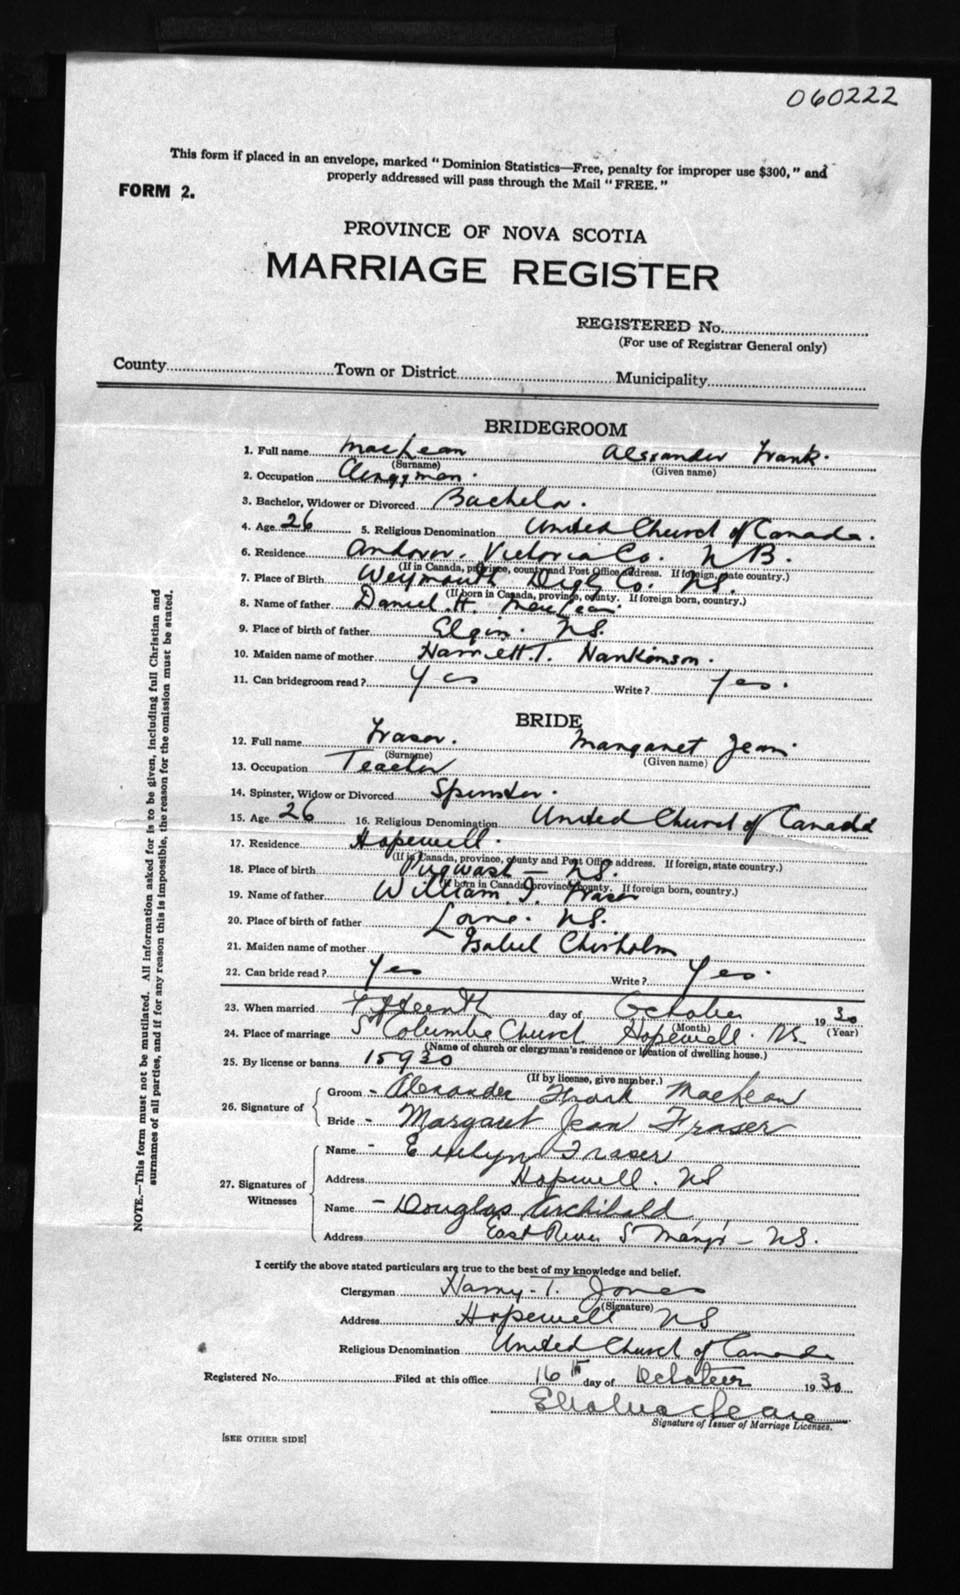 060222
This form if placed in an envelope, marked "Dominion Statistics—Free, penalty for improper use $300," and
properly addressed will pass through the Mail "FREE."
FORM 2.
PROVINCE OF NOVA SCOTIA
MARRIAGE REGISTER
REGISTERED No.
(For use of Registrar General only)
County Town or District Municipality
BRIDEGROOM
1. Full name MacLean Alexander Frank.
(Surname) (Given name)
2. Occupation Clergyman.
3. Bachelor, Widower or Divorced Bachelor.
4. Age 26 5. Religious Denomination United Church of Canada.
6. Residence Andover. Victoria Co. N.B.
(If in Canada, province, county and Post Office address. If foreign, state country.)
7. Place of Birth Weymouth Digby Co. N.S.
(If born in Canada, province, county. If foreign born, country.)
8. Name of father Daniel. H. MacLean.
9. Place of birth of father Elgin. N.S.
10. Maiden name of mother Harriett. T. Hankinson.
11. Can bridegroom read? Yes Write? Yes.
BRIDE
12. Full name Fraser. Margaret Jean.
(Surname) (Given name)
13. Occupation Teacher
14. Spinster, Widow or Divorced Spinster.
15. Age 26 16. Religious Denomination United Church of Canada
17. Residence Hopewell.
(If in Canada, province, county and Post Office address. If foreign, state country.)
18. Place of birth Pugwash — N.S.
(If born in Canada, province, county. If foreign born, country.)
19. Name of father William. Fraser
20. Place of birth of father Lorne. N.S.
21. Maiden name of mother Isabel Chisholm
22. Can bride read? Yes Write? Yes.
23. When married Fifteenth day of October 1930
(Month) (Year)
24. Place of marriage St Columba Church Hopewell. N.S.
(Name of church or clergyman's residence or location of dwelling house.)
25. By license or banns 15930
(If by license, give number.)
26. Signature of Groom - Alexander Frank MacLean
Bride - Margaret Jean Fraser
27. Signatures of Witnesses Name - Evelyn Fraser
Address Hopewell. NS
Name - Douglas Archibald
Address East River St Mary's — N.S.
I certify the above stated particulars are true to the best of my knowledge and belief.
Clergyman Harry. T. Jones
(Signature)
Address Hopewell NS
Religious Denomination United Church of Canada
Registered No. Filed at this office 16th day of October 1930
MacLean
Signature of Issuer of Marriage Licenses.
[SEE OTHER SIDE]
NOTE.—This form must not be mutilated. All information asked for is to be given, including full Christian and
surnames of all parties, and if for any reason this is impossible, the reason for the omission must be stated.